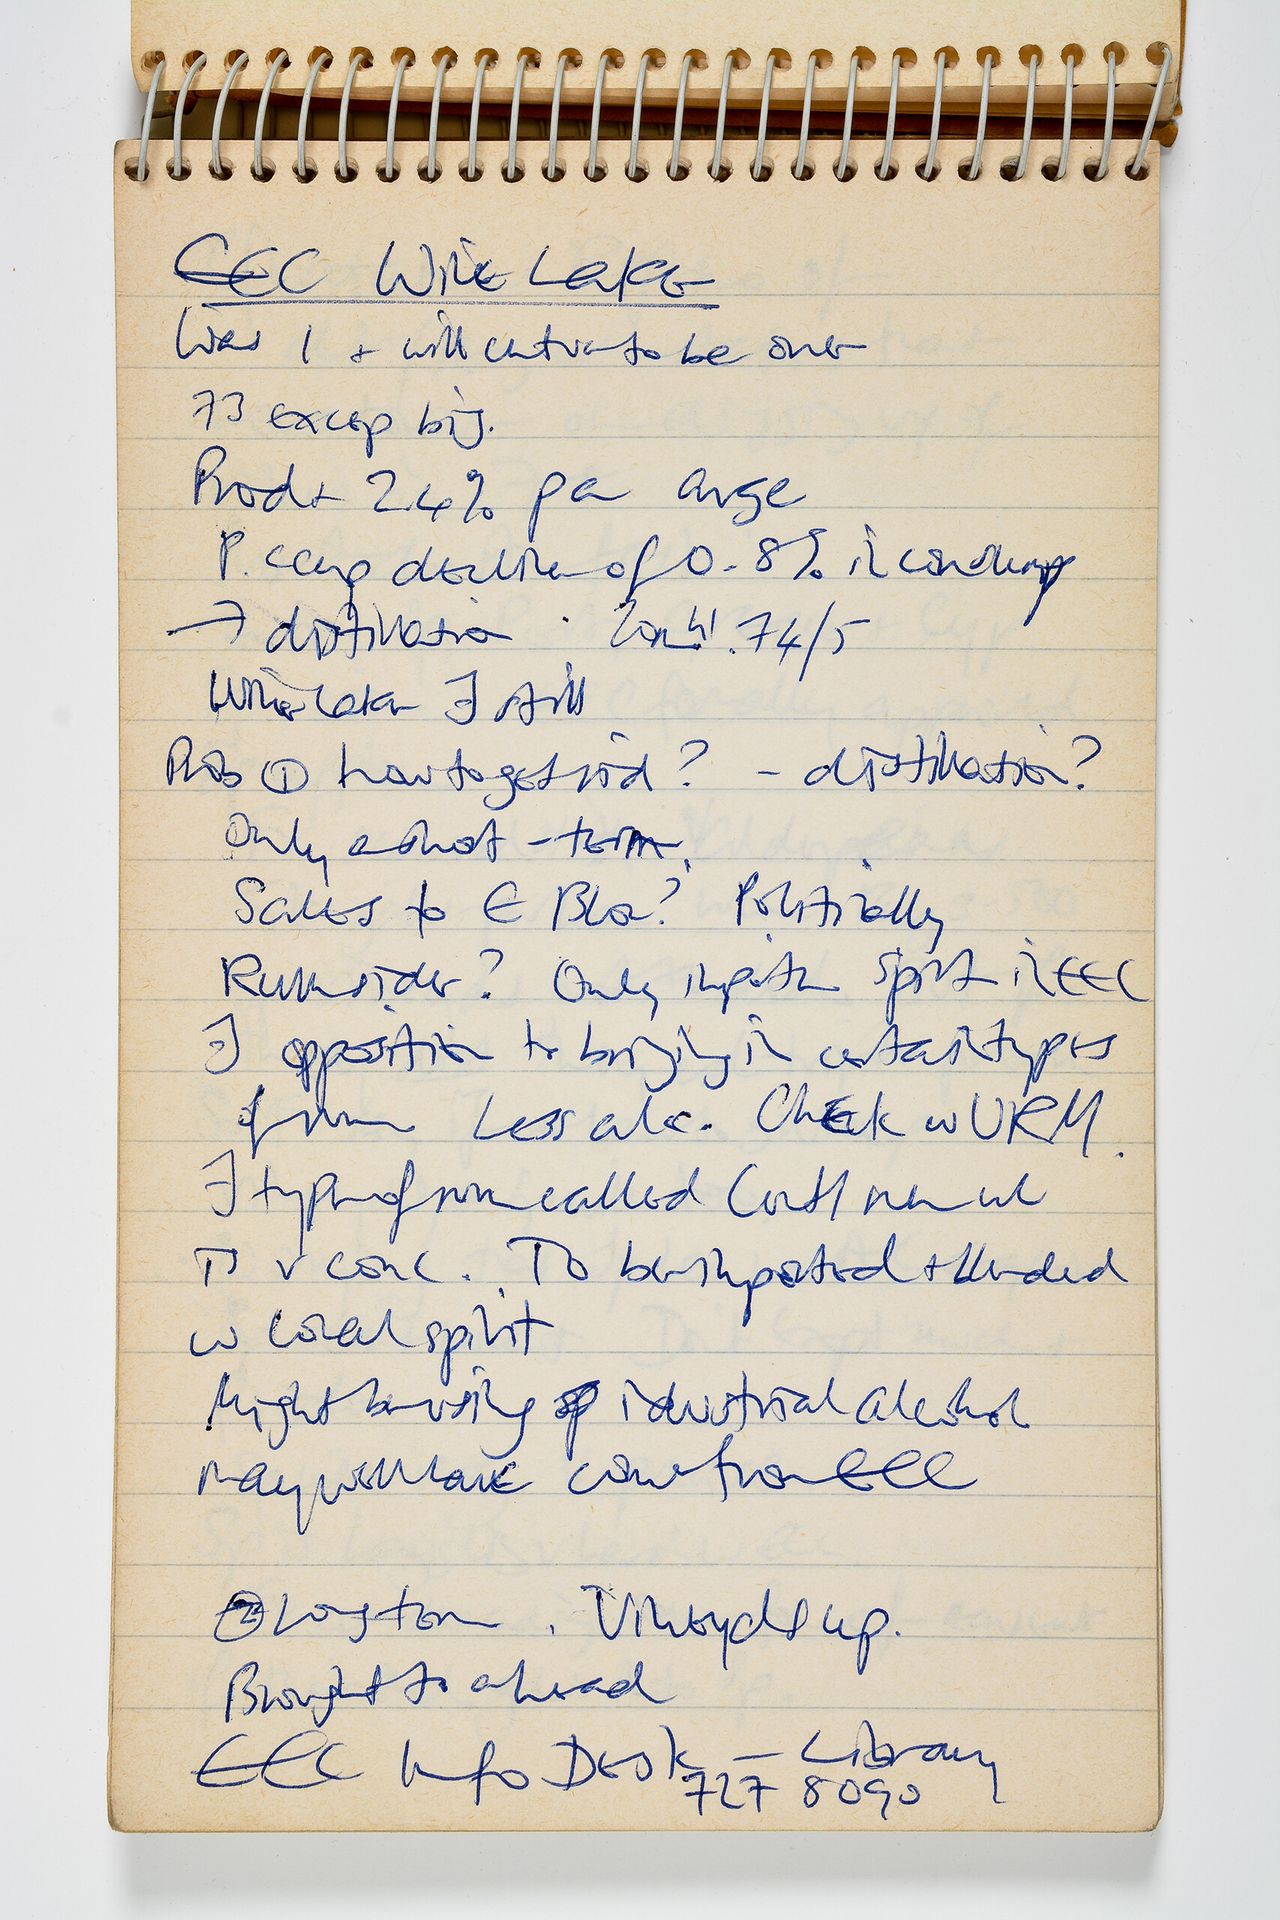 EEC Wine Lake
Was 1 + will continue to be over
73 excep big.
Prod + 2.4% pa avge
P. cap decline of 0.8% in
→ distillation 74/5
Wine lake ∃ still
Prob ① how to get rid? - distillation?
Only a short-term.
Sales to E Bloc? Politically
Rumsider? Only in spirit in EEC
∃ opposition to bringing in certain types
of rum Less alc. Check w URM.
∃ type of rum called Continental
v conc. To be imported + blended
w local spirit
Might be using industrial alcohol
may well have come from EEC
② Long term. Vineyds up.
Brought to a head
EEC Info Desk - Library
727 8090